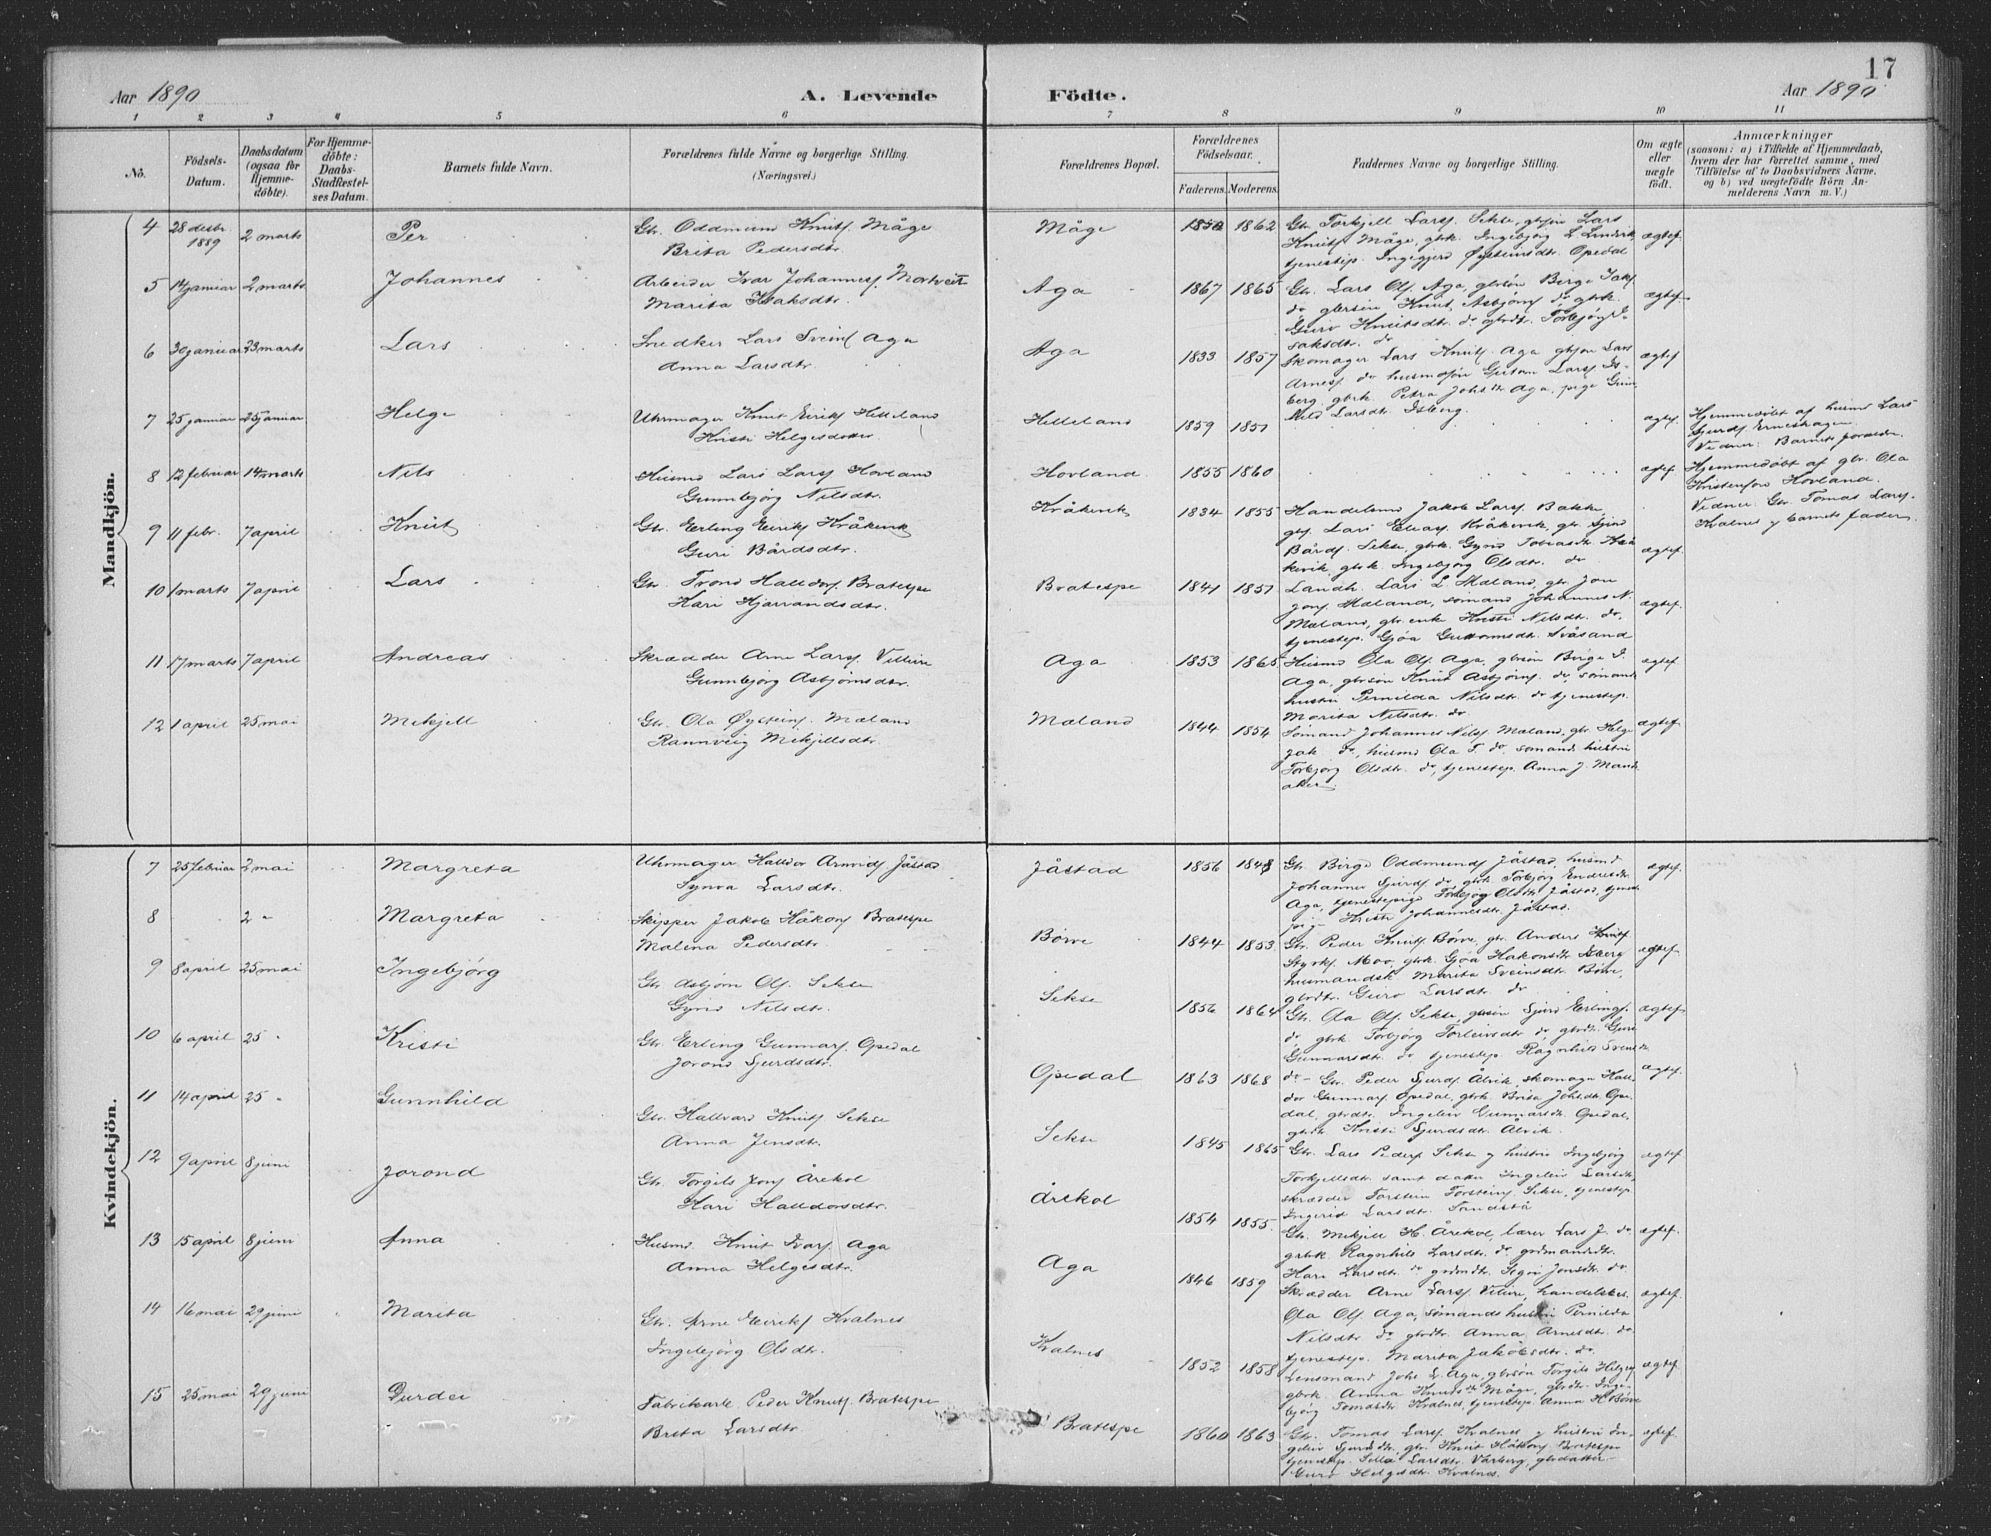 17
Aar 1890
A. Levende Födte.
Aar 1890
1 2 3 4 5 6 7 8 9 10 11
No.
Födsels-
Datum.
Daabsdatum
(ogsaa for
Hjemme-
döbte).
For Hjemme-
döbte:
Daabs-
Stadfæstel-
ses Datum.
Barnets fulde Navn.
Forældrenes fulde Navne og borgerlige Stilling.
(Næringsvei.)
Forældrenes Bopæl.
Forældrenes
Födselsaar.
Faderens. Moderens.
Faddernes Navne og borgerlige Stilling.
Om ægte
eller
uægte
födt.
Anmærkninger
(saasom: a) i Tilfælde af Hjemmedaab,
hvem der har forrettet samme, med
Tilföielse af to Daabsvidners Navne,
og b) ved uægtefödte Börn An-
melderens Navn m. V.)
Mandkjön.
4 28 desbr 1889 2 marts Per
Gbr. Oddmund Knuts. Måge
Brita Pedersdtr.
Måge 1850 1862
Gbr. Torkjell Lars. Sekse, gbrsøn Lars
Knuts. Måge, gbrk. Ingebjørg L
tjenestep. Ingegjerd Øysteinsdtr. Opedal
ægtef.
5 14 januar 2 marts Johannes
Arbeider Ivar Johanness.
Marita Isaksdtr.
Aga 1867 1865
Gbr. Lars Ols. Aga, gbrsøn Børge Isaks.
do gbrsøn Knut Asbjörns. do gbrk.
Guro Knutsdtr. do gbrdtr. Torbjørg I-
saksdtr. do
ægtef.
6 30 januar 23 marts Lars
Snedker Lars Sveins. Aga
Anna Larsdtr.
Aga 1833 1857
Skomager Lars Knuts. Aga gbrsøn Lars
Arnes. do husmdsøn Gutorm Lars. Is-
berg, gbrk. Petra Johsdtr Aga, pige Gun-
hild Larsdtr. Isberg.
ægtef
7 25 januar 25 januar Helge
Uhrmager Knut Eiriks. Helleland
Kristi Helgesdotter.
Helleland 1859 1851
ægtef.
Hjemmedøbt af husmd Lars
Sjurds.
Vidner: Barnets forældre.
8 12 februar 14 marts Nils
Husmd Lars Lars. Hovland
Gunnbjörg Nilsdtr.
Hovland 1855 1860
ægtef.
Hjemmedøbt af gbr. Ola
Kristensen Hovland.
Vidner: Gbr. Tomas Lars.
Kvalnes og barnets fader.
9 11 febr. 7 april Knut
Gbr. Erling Eiriks. Kråkevik
Guri Bårdsdtr.
Kråkevik 1834 1855
Handelsmd Jakob Lars. Bakke,
gbr. Lars Elias. Kråkevik, gbr. Sjurd
Bårds. Sekse, gbrk. Gyrid Tobiasdtr. Krå-
kevik, gbrk. Ingebjørg Olsdtr. do
ægtef.
10 1 marts 7 april Lars
Gbr. Trond Halldors. Bratespe
Kari Hjarrandsdtr.
Bratespe 1841 1851
Landh. Lars L. Mæland, gbr. Jon
Jons. Mæland, sømand Johannes N.
Mæland, gbr. enke Kristi Nilsdtr. do,
tjenestep. Gjøa Guttormsdtr. Svåsand
ægtef.
11 17 marts 7 april Andreas
Skrædder Arne Lars. Vilure
Gunnbjörg Asbjörnsdtr.
Aga 1853 1865
Husmd Ola Ols. Aga, gbrsøn Børge I.
Aga, gbrsøn Knut Asbjörns. do, sømands
hustru Pernilda Nilsdtr. do tjenestep.
Marita Nilsdtr. do
ægtef.
12 1 april 25 mai Mikjell
Gbr. Ola Øysteins. Mæland
Rannveig Mikjellsdtr.
Mæland 1844 1854
Sømand Johannes Nils. Mæland, gbr. Helge
do, husmd Ola T. do, sømands hustru
Torbjörg Olsdtr. do, tjenestep. Anna J. Mand-
aker
ægtef.
Kvindekjön.
7 25 februar 2 mai Margreta
Uhrmager Halldor Arnvids. Jåstad
Synva Larsdtr.
Jåstad 1856 1848
Gbr. Børge Oddmunds. Jåstad, husmd
Johannes Sjurds. do, gbrk. Torbjørg Endresdtr.
Aga, tjenestepige Torbjørg Olsdtr. Jåstad,
pige Kristi Johannesdtr. Jåstad.
ægtef.
8 2 " Margreta
Skipper Jakob Håkons. Bratespe
Malena Pedersdtr.
Børve 1844 1853
Gbr. Peder Knuts. Børve, gbr. Anders Knuts.
Styrks. Moo, gbrk. Gjøa Hakonsdtr. Isberg
husmandsk. Marita Sveinsdtr. Børve,
gbrdtr. Guro Larsdtr. do
ægtef.
9 8 april 25 mai Ingebjörg
Gbr. Asbjørn Ols. Sekse
Gyrid Nilsdtr.
Sekse 1856 1864
Gbr. Ola Ols. Sekse, gbrsøn Sjurd Erlings.
do, gbrk. Torbjørg Torleivsdtr. do, gbrdtr. Guri
Gunnarsdtr. do tjenestep. Ragnhild Svensdtr.
do
ægtef.
10 6 april 25 " Kristi
Gbr. Erling Gunnars. Opedal
Jorond Sjurdsdtr.
Opedal 1863 1868
Gbr. Peder Sjurds. Ålvik, skomager Hall-
dor Gunnars. Opedal, gbrk. Brita Johsdtr. Ope-
dal, gbrdtr. Ingeleiv Gunnarsdtr. Opedal,
gbrdtr. Kristi Sjurdsdtr. Ålvik.
ægtef.
11 14 april 25 " Gunnhild
Gbr. Hallvard Knuts. Sekse
Anna Jensdtr.
Sekse 1845 1865
Gbr. Lars Peders. Sekse og hustru Ingebjörg
Torkjellsdtr. samt datter Ingeleiv Larsdtr,
skrædder Torstein Torsteins. Sekse, tjenestep.
Ingerid Larsdtr. Sandstå
ægtef.
12 9 april 8 juni Jorond
Gbr. Torgils Jons. Årekol
Kari Halldorsdtr.
Årekol 1854 1855
Gbr. Mikjell H. Årekol, lærer Lars J. do
gbrk. Ragnhild Larsdtr. do, grdmandsdtr.
Kari Larsdtr. do grdmdtr. Segvi Jonsdtr. do.
ægtef.
13 15 april 8 juni Anna
Husmd Knut Ivars. Aga
Anna Helgesdtr.
Aga 1846 1859
Skrædder Arne Lars. Vilure, handelsbet.
Ola Ols. Aga, sømands hustru Pernilda
Nilsdtr. do, gbrdtr. Anna Arnesdtr. do
tjenestep. Marita Jakobsdtr. do.
ægtef.
14 16 mai 29 juni Marita
Gbr. Arne Eiriks. Kvalnes
Ingebjörg Olsdtr.
Kvalnes 1852 1858
Lensmand Johs L. Aga, gbrsøn Torgils Helges.
gbrk. Anna Knutsdtr Måge, gbrdtr. Inge-
björg Tomasdtr Kvalnes, tjenestep. Anna H. Børve
ægtef.
15 25 mai 29 juni Durdei
Fabrikarb. Peder Knuts. Bratespe
Brita Larsdtr.
Bratespe 1860 1863
Gbr. Tomas Lars. Kvalnes og hustru In-
geleiv Sjursdtr, gbr. Knut Håkons. Bratespe
tjenestep. Silla Larsdtr. Vårberg, gbrdatter
Guro Helgesdtr. Kvalnes.
ægtef.